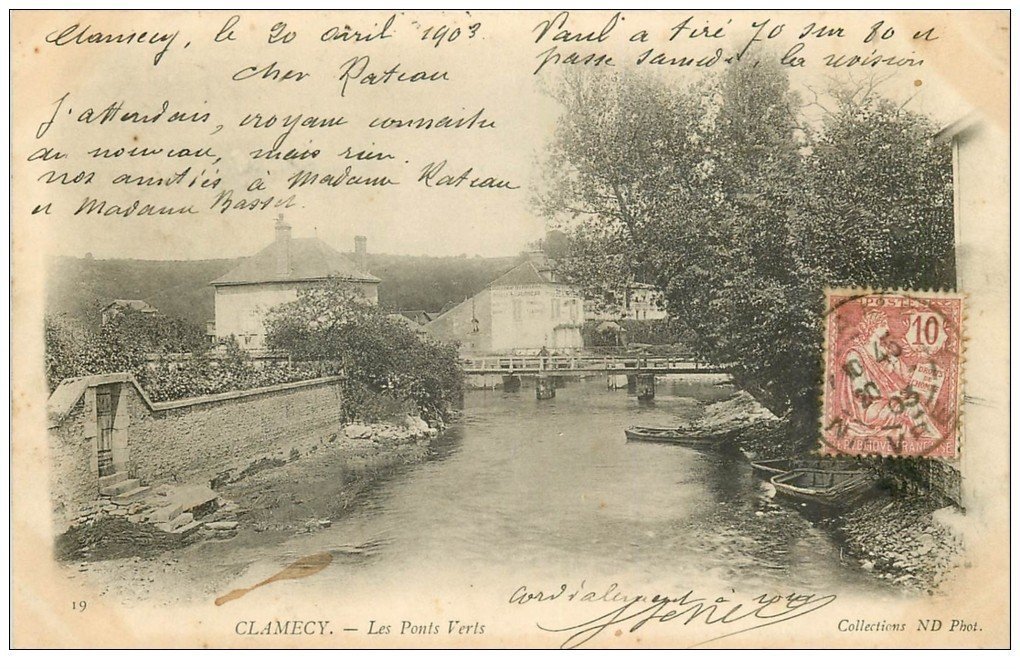 Clamecy, le 20 avril 1903.
cher Rateau
J'attendais, croyant connaitre
du nouveau, mais rien.
nos amitiés à Madame Rateau
et Madame Basset.
Paul a tiré 70 sur 80 et
passe Samedi, la révision
POSTES
10
RÉPUBLIQUE FRANÇAISE
cordialement à vous
19
CLAMECY. — Les Ponts Verts
Collections ND Phot.